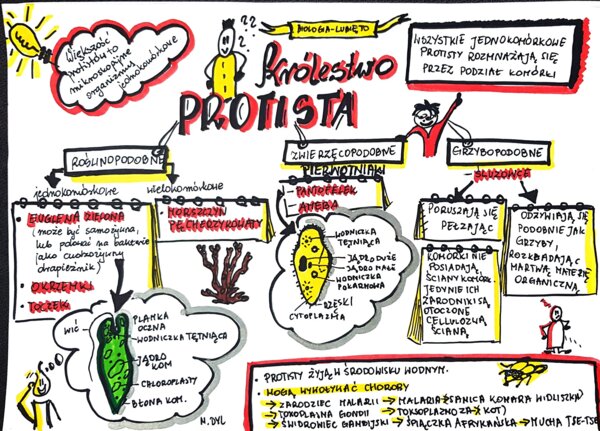 BIOLOGIA-LUBIĘ TO
Większość
protistów to
mikroskopijne
organizmy
jednokomórkowe
??
Królestwo
PROTISTA
WSZYSTKIE JEDNOKOMÓRKOWE
PROTISTY ROZMNAŻAJĄ SIĘ
PRZEZ PODZIAŁ KOMÓRKI
ROŚLINOPODOBNE
jednokomórkowe
EUGLENA ZIELONA
(może być samożywna,
lub polować na bakterie
jako cudzożywny
drapieżnik)
OKRZEMKI
TOCZEK
wielokomórkowe
MORSZCZYN
PĘCHERZYKOWATY
WIĆ
PLAMKA
OCZNA
WODNICZKA TĘTNIĄCA
JĄDRO
KOM
CHLOROPLASTY
BŁONA KOM.
M. DYL
ZWIERZĘCOPODOBNE
PIERWOTNIAKI
- PANTOFELEK
- AMEBA
WODNICZKA
TĘTNIĄCA
JĄDRO DUŻE
JĄDRO MAŁE
WODNICZKA
POKARMOWA
RZĘSKI
CYTOPLAZMA
GRZYBOPODOBNE
- ŚLUZOWCE
PORUSZAJĄ SIĘ
PEŁZAJĄC
KOMÓRKI NIE
POSIADAJĄ
ŚCIANY KOMÓRK.
JEDYNIE ICH
ZARODNIKI SĄ
OTOCZONE
CELLULOZOWĄ
ŚCIANĄ
ODŻYWIAJĄ SIĘ
PODOBNIE JAK
GRZYBY,
ROZKŁADAJĄC
MARTWĄ MATERIĘ
ORGANICZNĄ
• PROTISTY ŻYJĄ W ŚRODOWISKU WODNYM.
• MOGĄ WYWOŁYWAĆ CHOROBY
→ ZARODZIEC MALARII → MALARIA (SAMICA KOMARA WIDLISZKA)
→ TOXOPLASMA GONDII → TOKSOPLAZMOZA → KOT)
→ ŚWIDROWIEC GAMBIJSKI → ŚPIĄCZKA AFRYKAŃSKA → MUCHA TSE-TSE